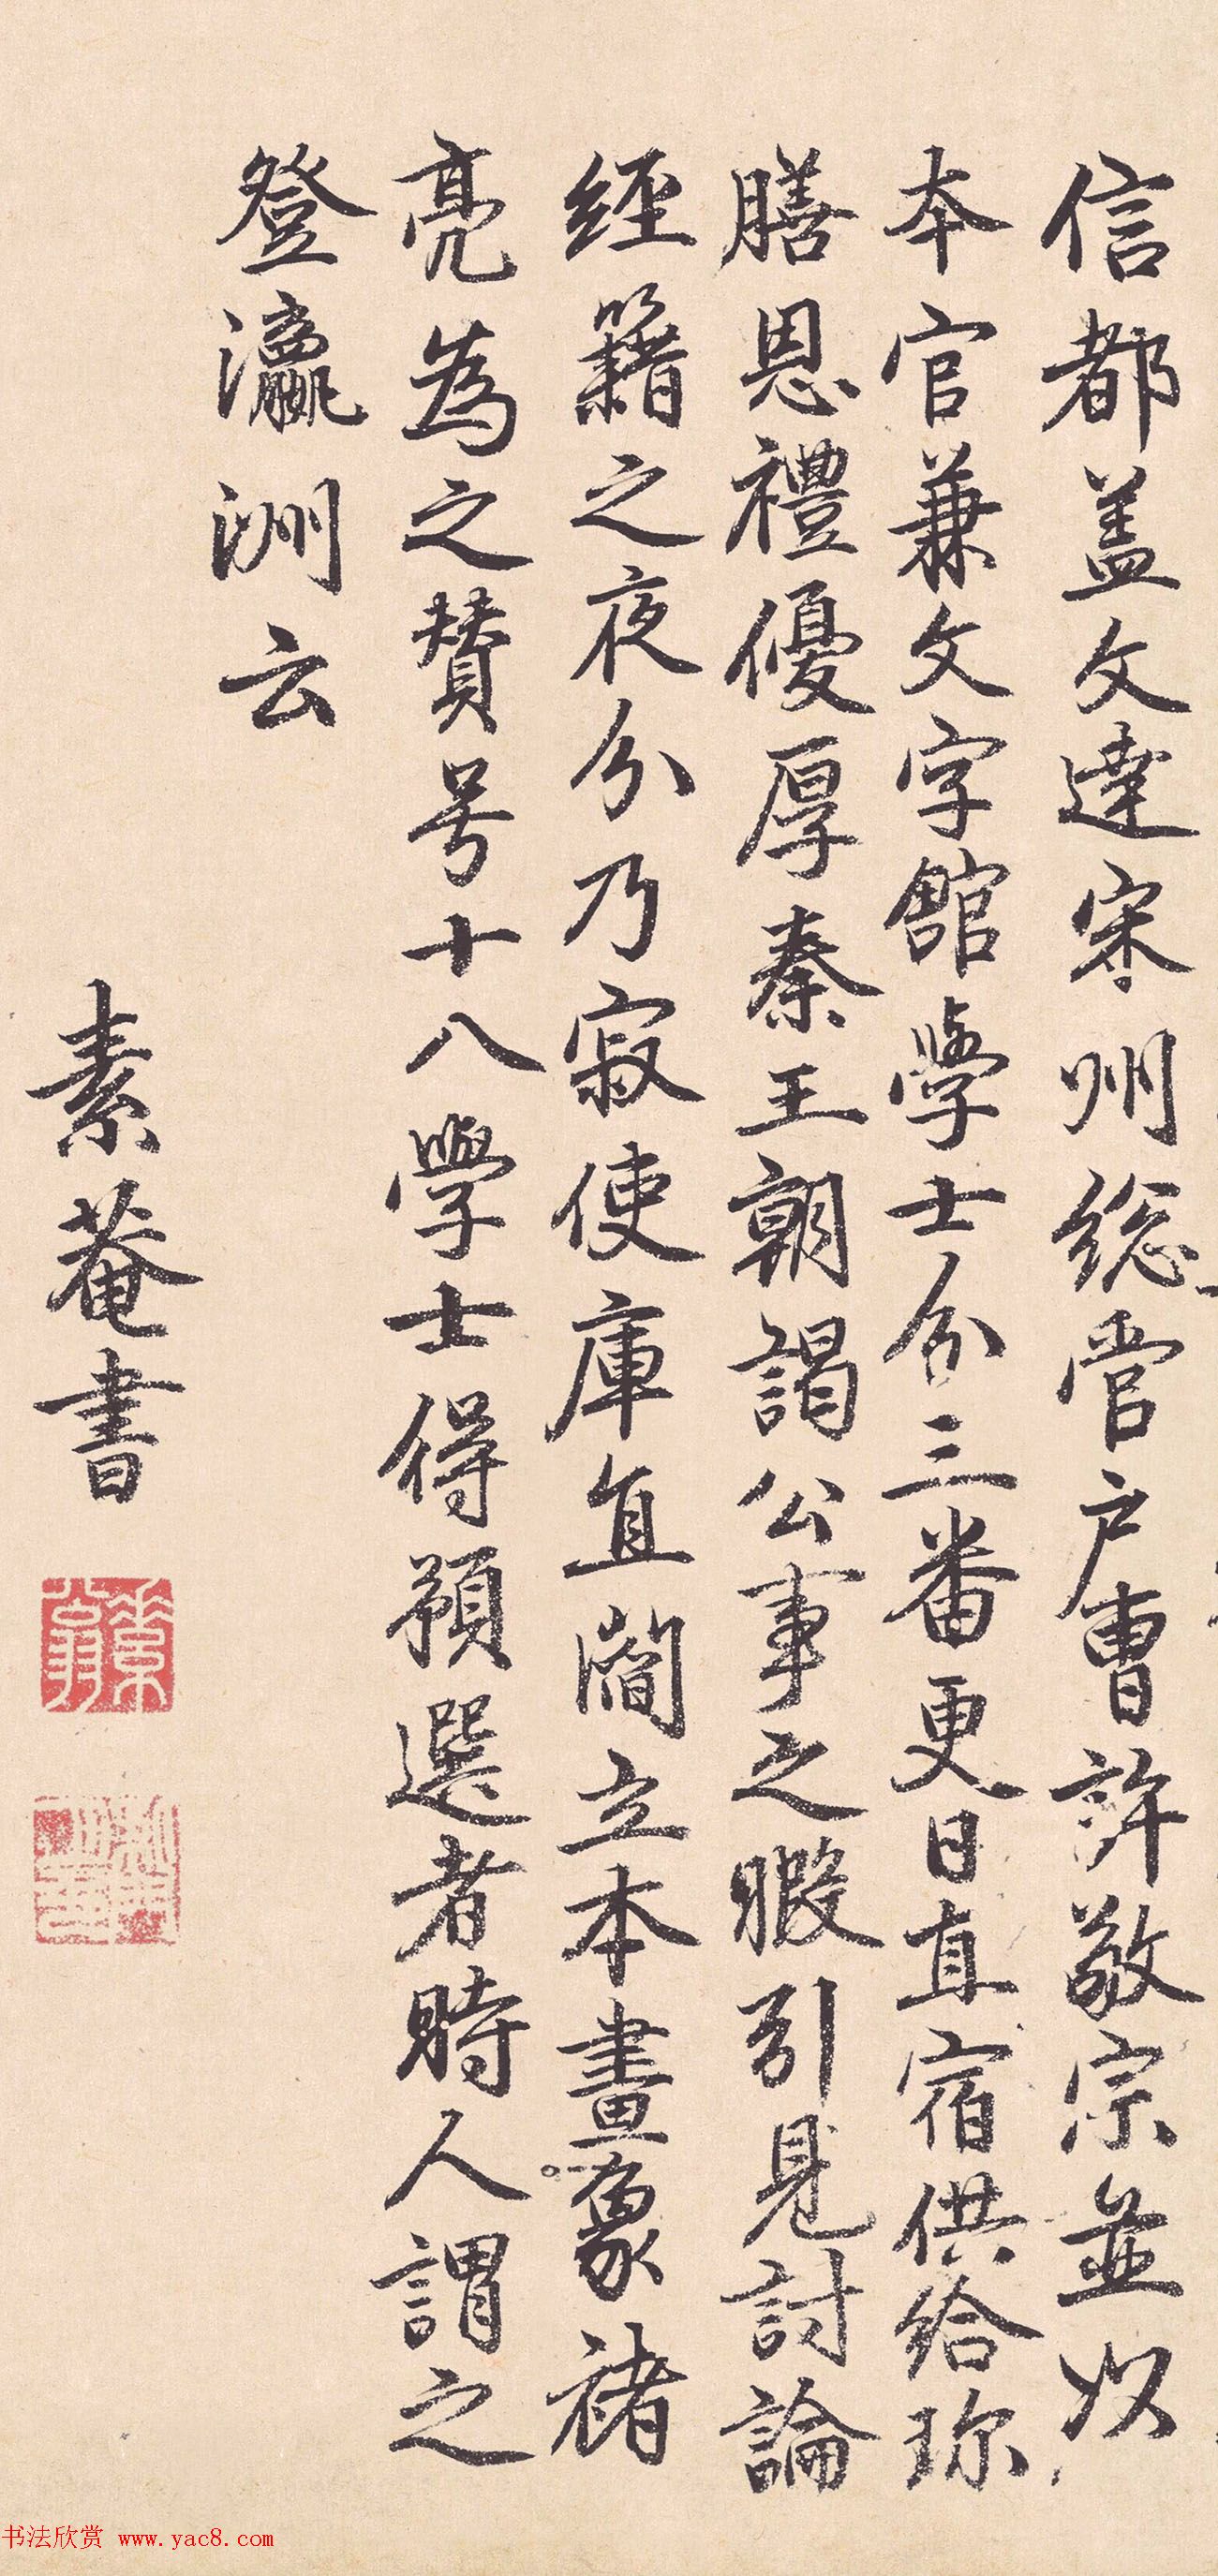 信都盖文達宋州総管户曹許敬宗並以
本官兼文字館學士分三番更日直宿供給珎
膳恩禮優厚秦王朝謁公事之暇引見討論
經籍之夜分乃寂使庫直閻立本畫象褚
亮為之賛号十八學士得預選者時人謂之
登瀛洲云
素菴書
书法欣赏 www.yac8.com